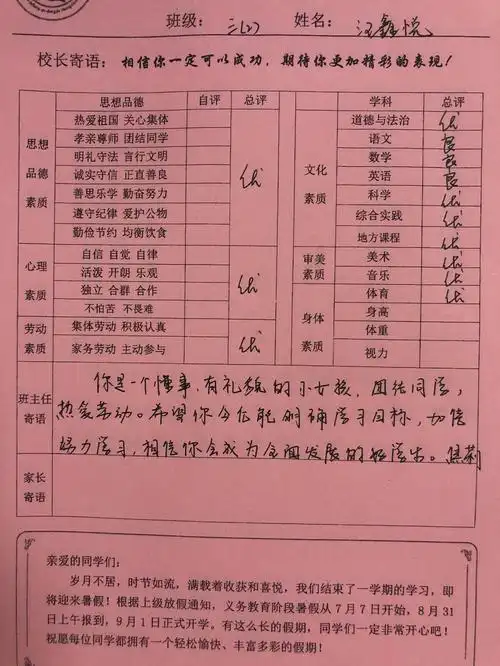 班级: 三(2) 姓名: 汪鑫悦
校长寄语: 相信你一定可以成功，期待你更加精彩的表现!
思想品德 自评 总评 学科 总评
思想品德素质
热爱祖国 关心集体
孝亲尊师 团结同学
明礼守法 言行文明
诚实守信 正直善良
善思乐学 勤奋努力
遵守纪律 爱护公物
勤俭节约 均衡饮食
优
心理素质
自信 自觉 自律
活泼 开朗 乐观
独立 合群 合作
不怕苦 不畏难
优
劳动素质
集体劳动 积极认真
家务劳动 主动参与
优
文化素质
道德与法治 优
语文 良
数学 良
英语 良
科学 优
综合实践 优
地方课程 优
审美素质
美术 优
音乐 优
身体素质
体育 优
身高
体重
视力
班主任寄语
你是一个懂事,有礼貌的小女孩，团结同学，
热爱劳动。希望你今后能明确学习目标，加倍
努力学习,相信你会成为全面发展的好学生。
家长寄语
亲爱的同学们:
岁月不居，时节如流，满载着收获和喜悦，我们结束了一学期的学习，即
将迎来暑假! 根据上级放假通知，义务教育阶段暑假从 7 月 7 日开始，8 月 31
日上午报到，9 月 1 日正式开学。有这么长的假期，同学们一定非常开心吧!
祝愿每位同学都拥有一个轻松愉快、丰富多彩的假期!